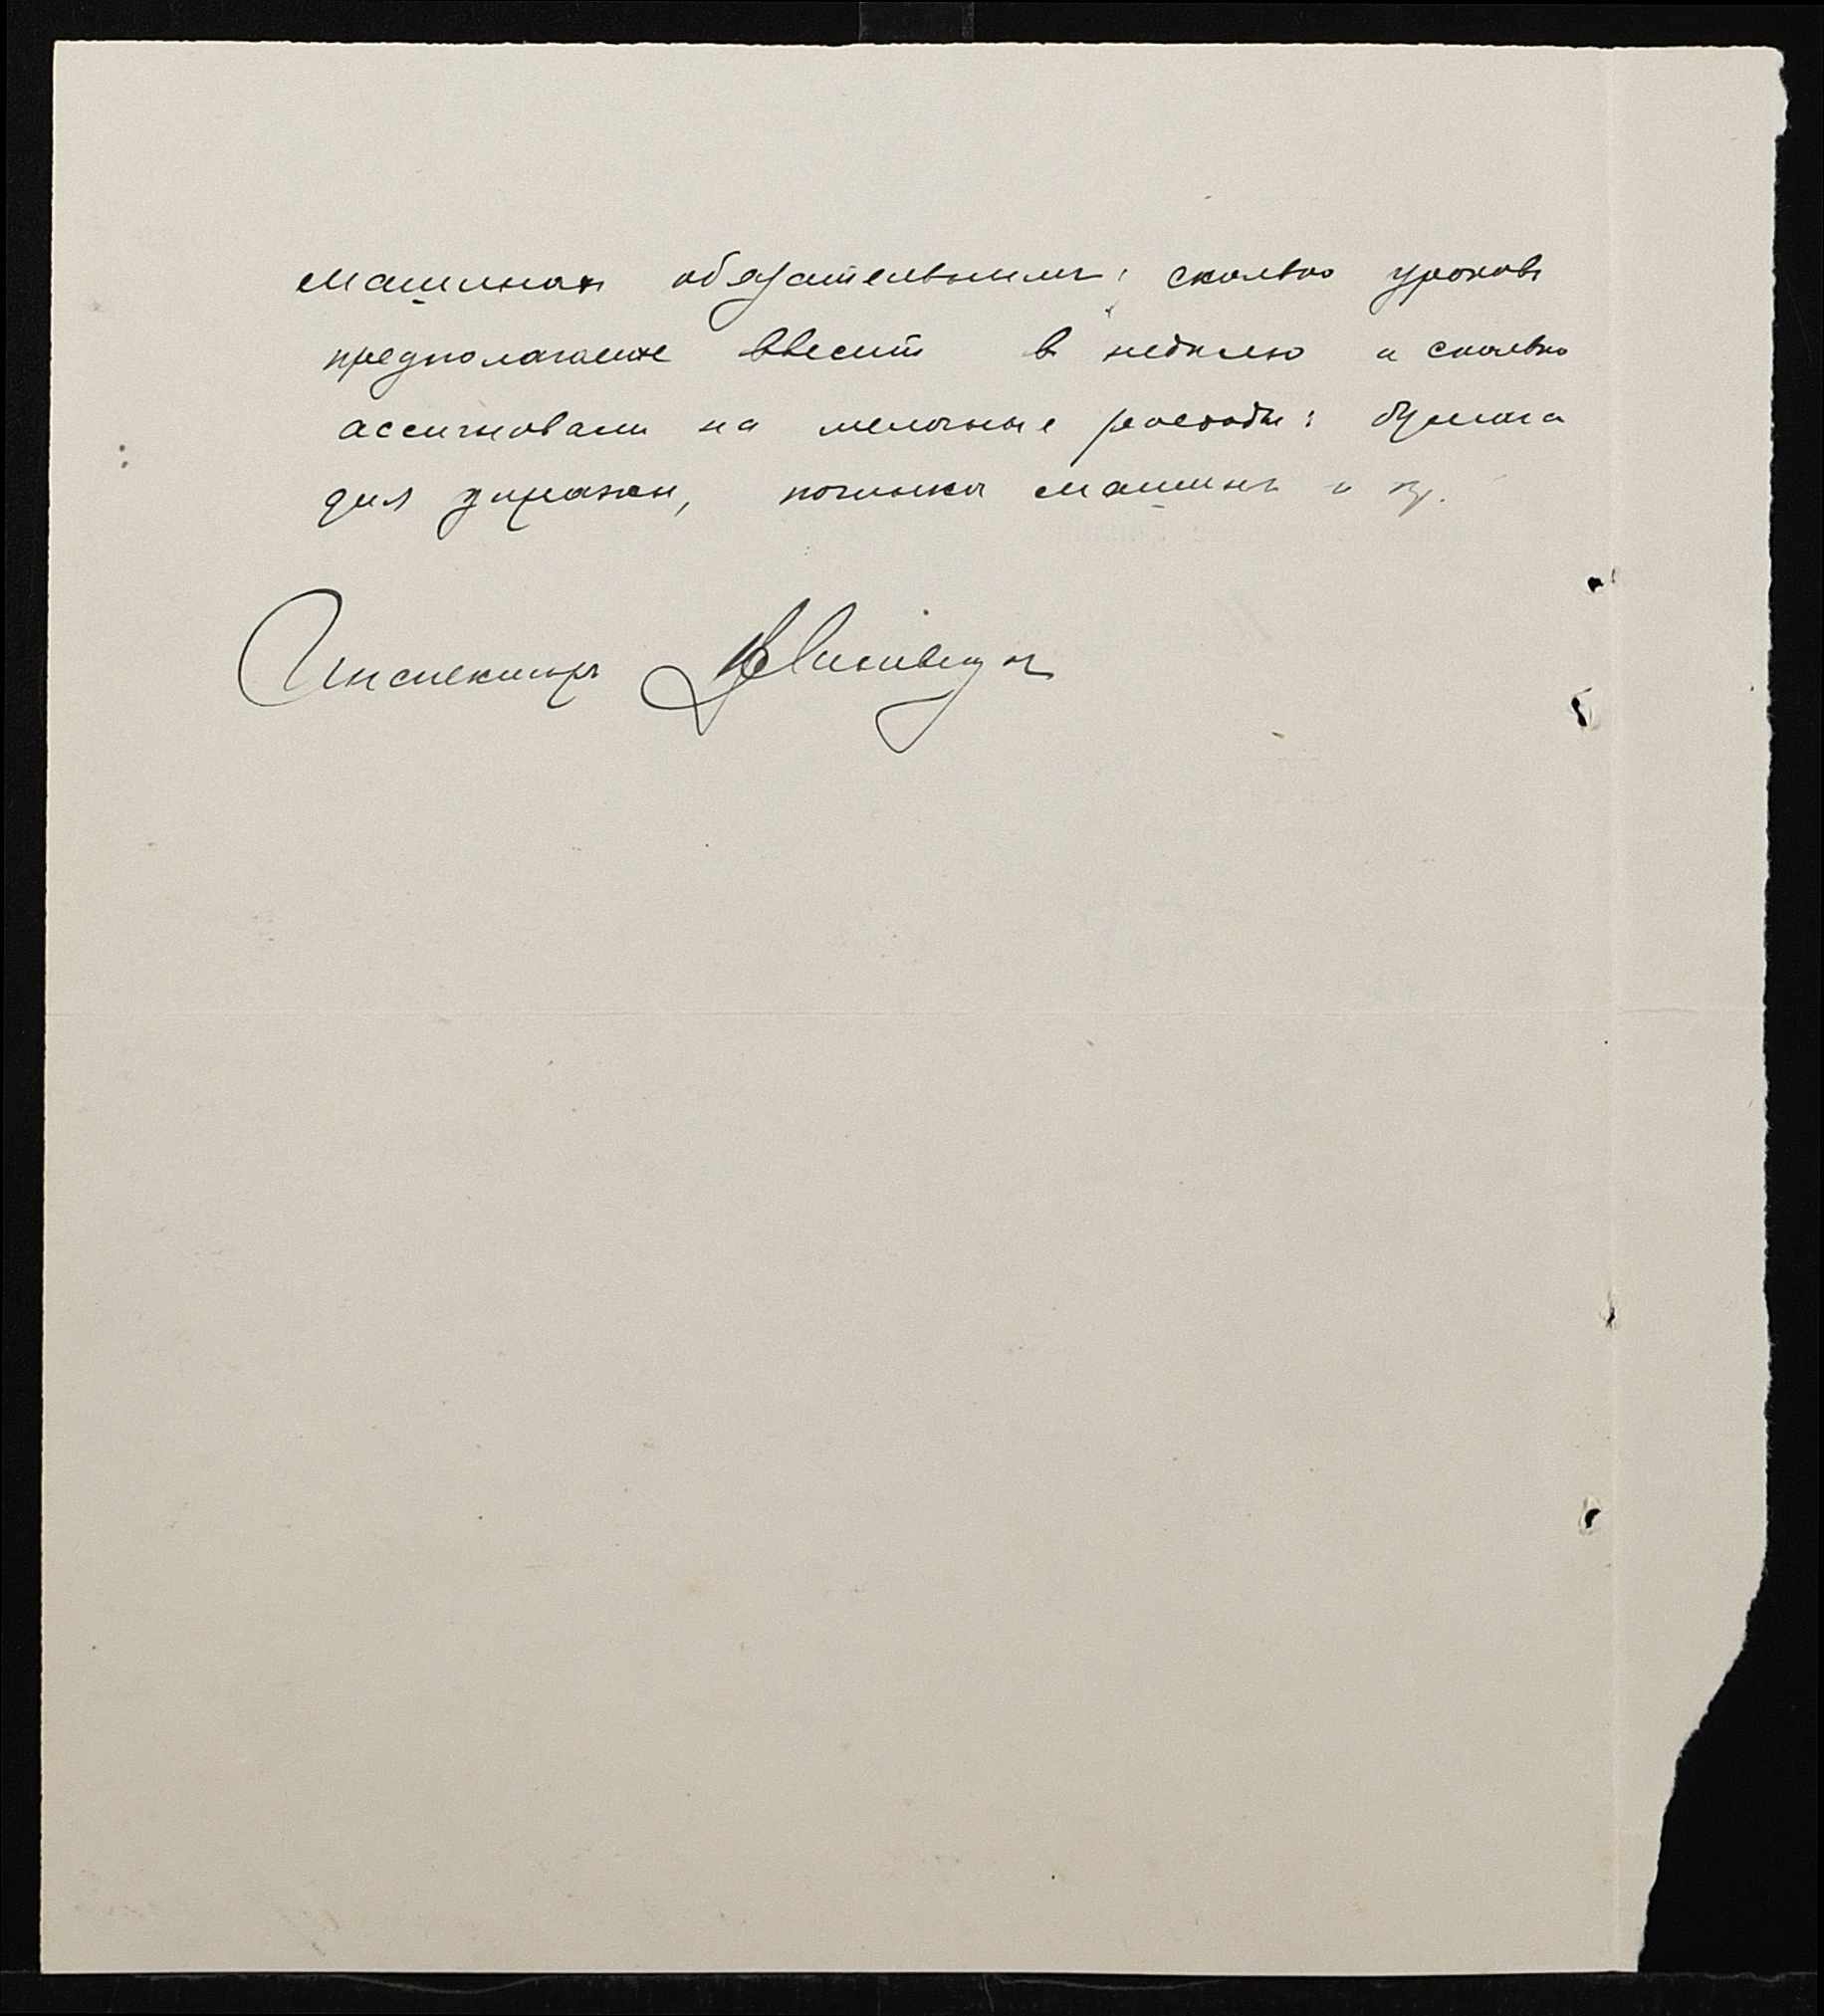 машинах обязательным: сколько уроков
предполагаете ввести в неделю и сколько
ассигновали на мелочные расходы: бумага
для упражн, починка машинъ и пр.
Инспекторъ